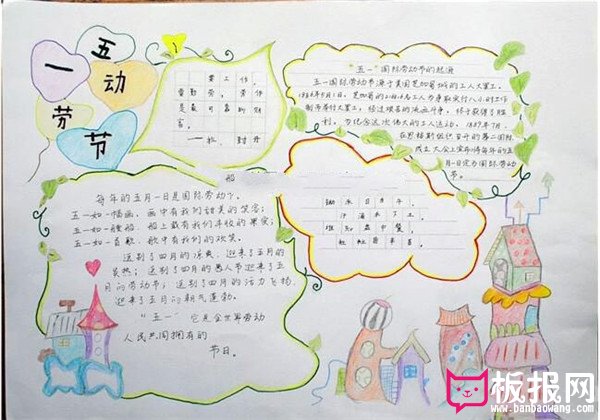 五一劳动节
要工作，
要勤劳，劳作
是最可靠的财
富。
“五一”国际劳动节的起源
五一国际劳动节源于美国芝加哥城的工人大罢工。
1886年5月1日，芝加哥的
制而举行大罢工，经过艰苦的流血斗争，终于获得了胜
利。为纪念这次伟大的工人运动，1889年7月，
在恩格斯组织召开的第二国际
成立大会上宣布将每年的五
月一日定为国际劳动
节。
锄禾日当午，
汗滴禾下土。
谁知盘中餐，
粒粒皆辛苦。
每年的五月一日是国际劳动节。
五一如一幅画，画中有我们甜美的笑容；
五一如一艘船，船上载有我们丰收的果实；
五一如一首歌，歌中有我们的欢笑。
送别了四月的清爽，迎来了五月的
炎热；送别了四月的愚人节迎来了五
月的劳动节；送别了四月的活力飞扬，
迎来了五月的朝气蓬勃。
“五一”，它是全世界劳动
人民共同拥有的
节日。
板报网
www.banbaowang.com